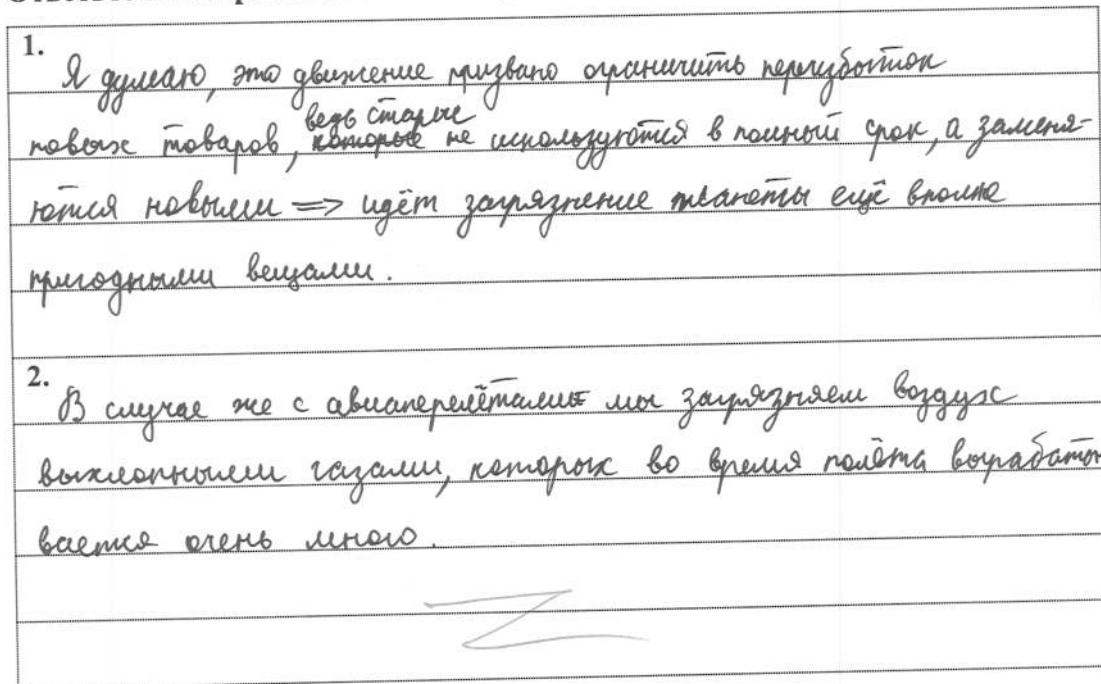 1.
Я думаю, это движение призвано ограничить переизбыток
ведь старые
новых товаров, которые не используются в полный срок, а заменя-
ются новыми => идёт загрязнение планеты ещё вполне
пригодными вещами.
2.
В случае же с авиаперелётами мы загрязняем воздух
выхлопными газами, которых во время полёта вырабаты
вается очень много.